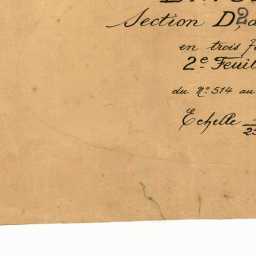 Section D2
en trois
2e Feuil
du No 514 au
Echelle